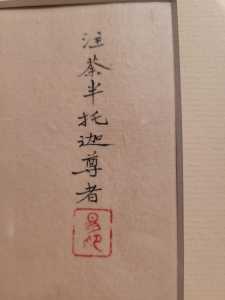 注荼半托迦尊者